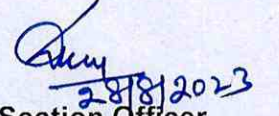 28/8/2023
Section Officer